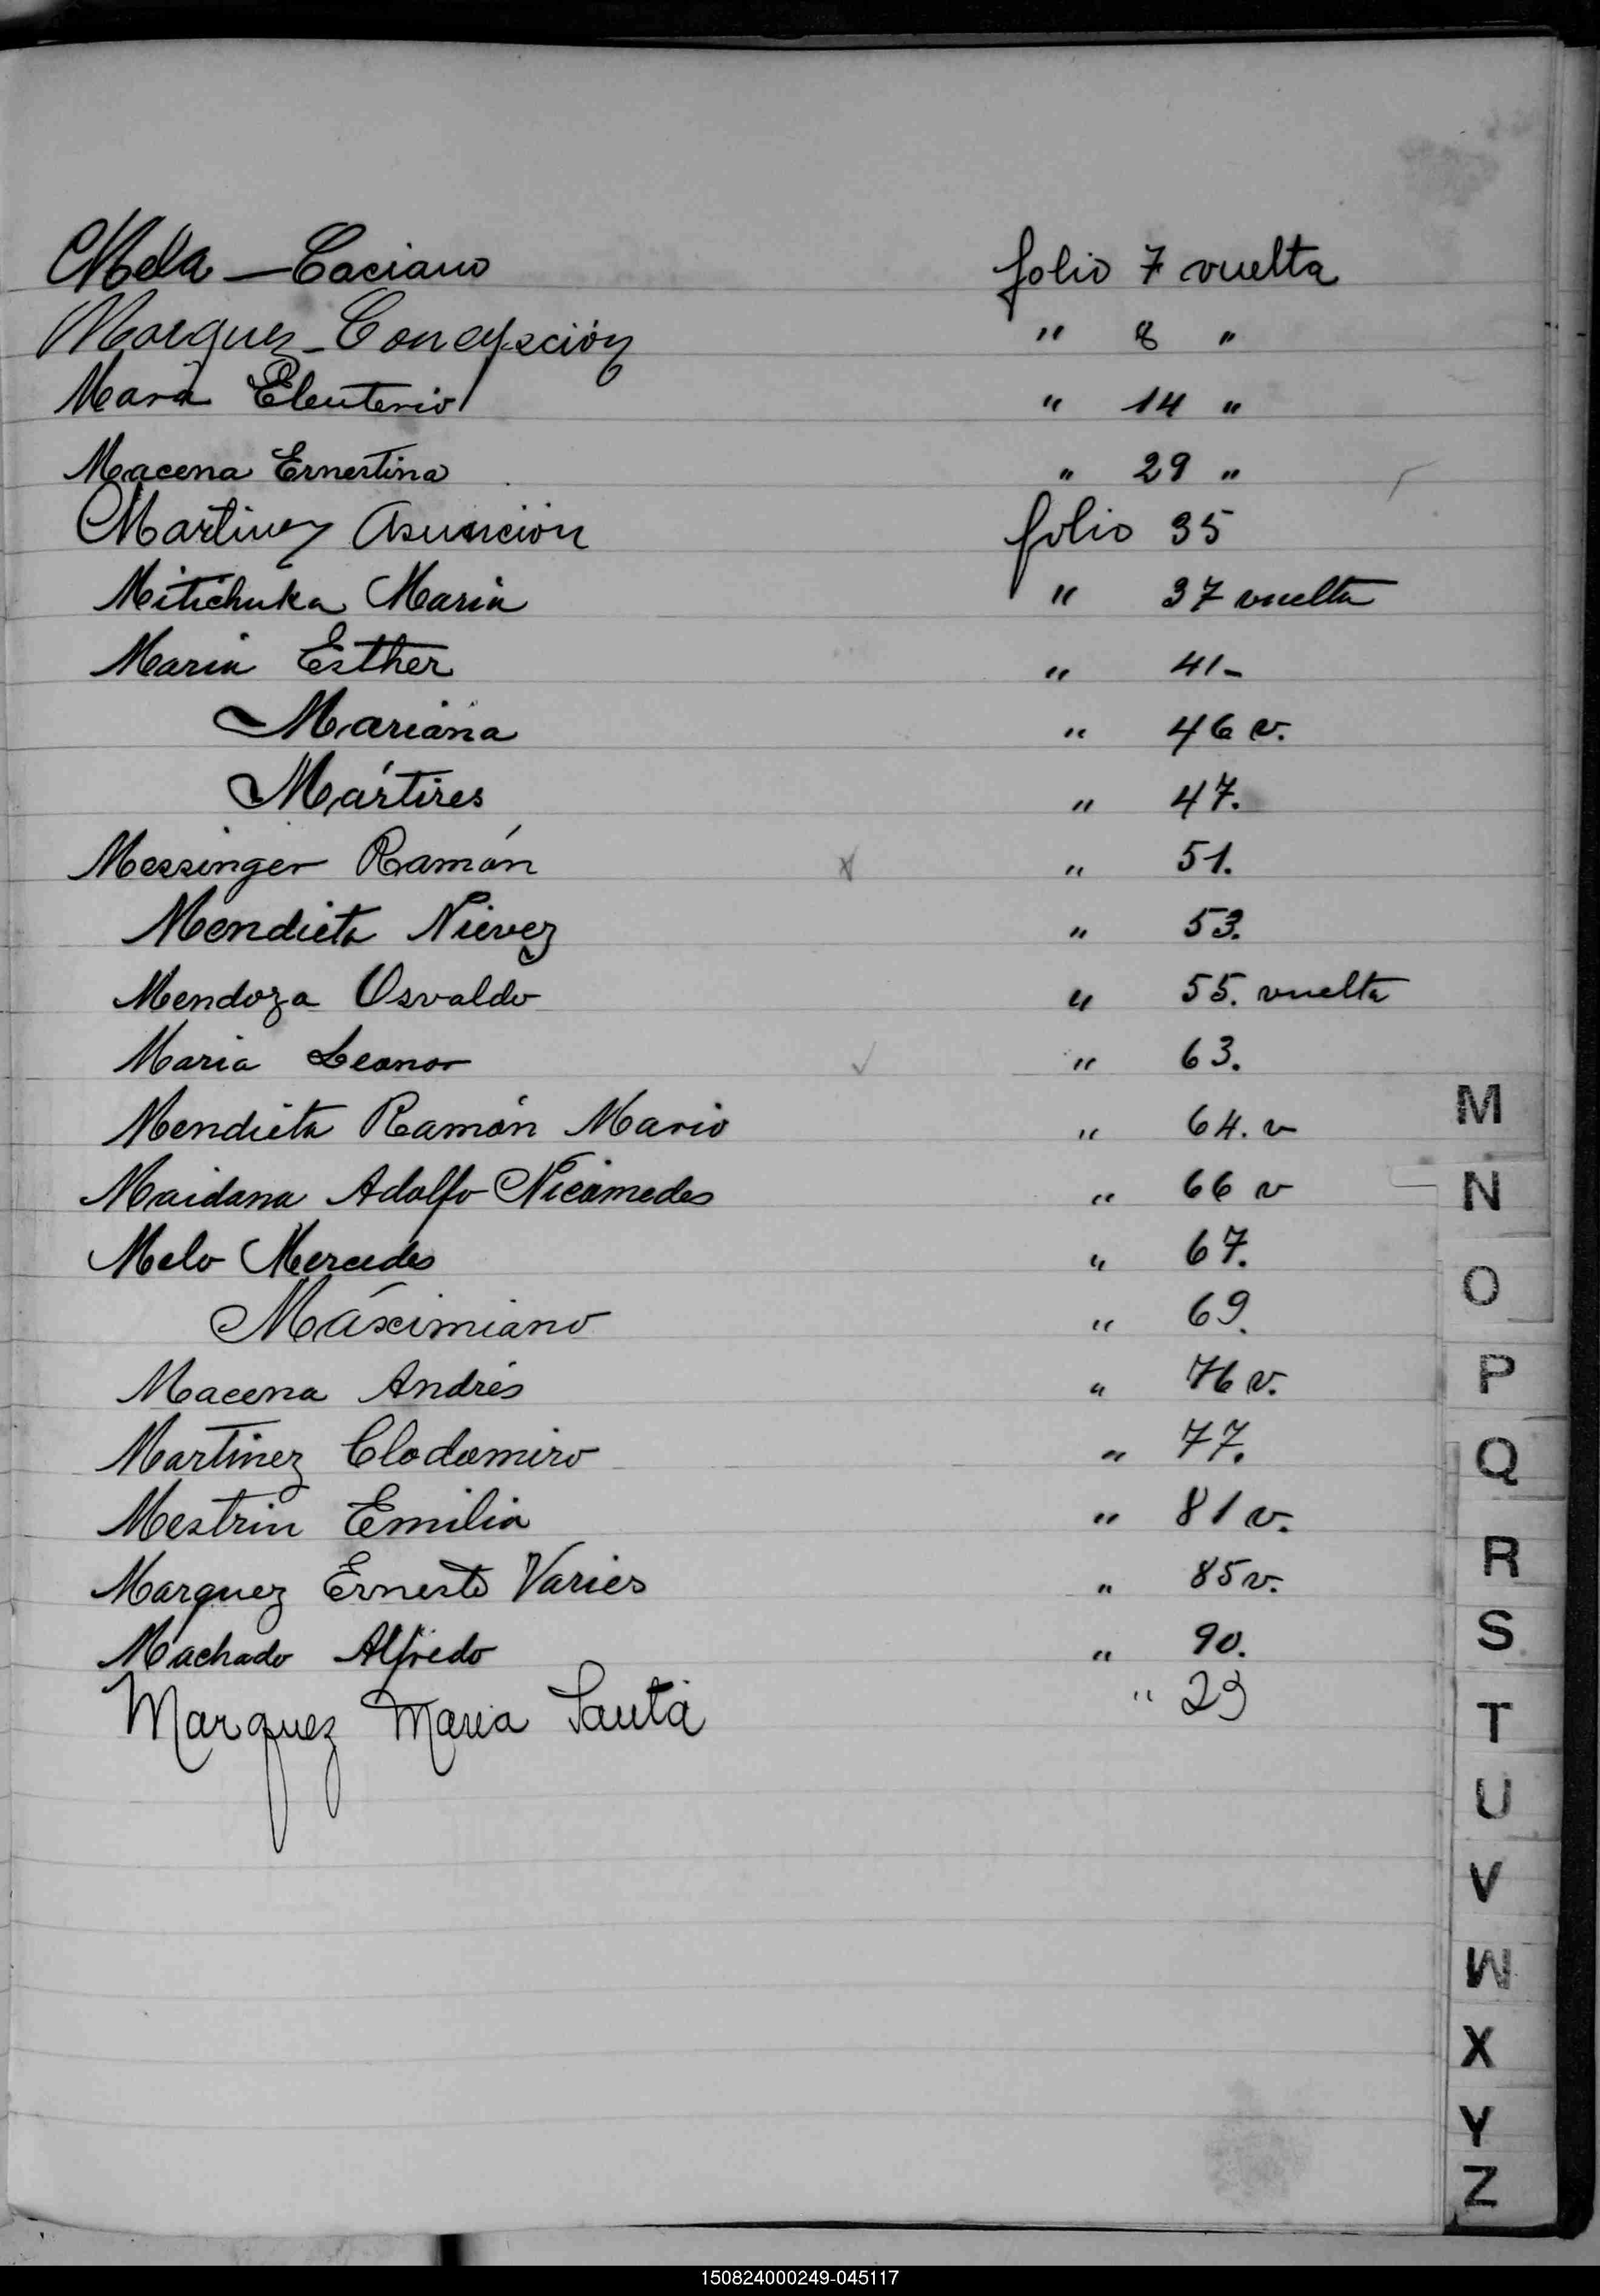 Mela — Caciano folio 7 vuelta
Marquez - Concepción " 8 "
Mara Eleuterio " 14 "
Macena Ernestina " 29 "
Martinez Asunción folio 35
Mitichuka Maria " 37 vuelta
Maria Esther " 41-
Mariana " 46 v.
Mártires " 47.
Messinger Ramón " 51.
Mendieta Nievez " 53.
Mendoza Osvaldo " 55. vuelta
Maria Leonor " 63.
Mendieta Ramón Mario " 64. v
Maidana Adolfo Nicomedes " 66 v
Melo Mercedes " 67.
Máximiano " 69.
Macena Andrés " 76 v.
Martinez Clodomiro " 77.
Mestrin Emilia " 81 v.
Marquez Ernesto Varies " 85 v.
Machado Alfredo " 90.
Marquez Maria Santa " 23
M
N
O
P
Q
R
S
T
U
V
W
X
Y
Z
150824000249-045117